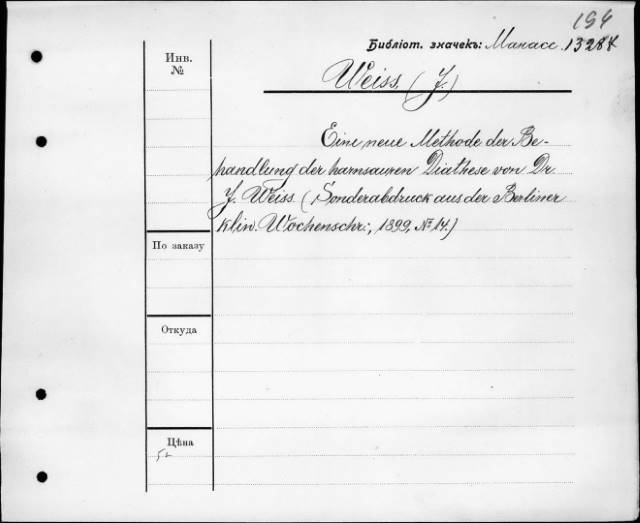 194
Библіот. значекъ: Манасс. 13284
Инв.
№
Weiss. (J.)
Eine neue Methode der Be-
handlung der harnsauren Diathese von Dr.
J. Weiss. (Sonderabdruck aus der Berliner
klin. Wochenschr., 1899, № 14.)
По заказу
Откуда
Цѣна